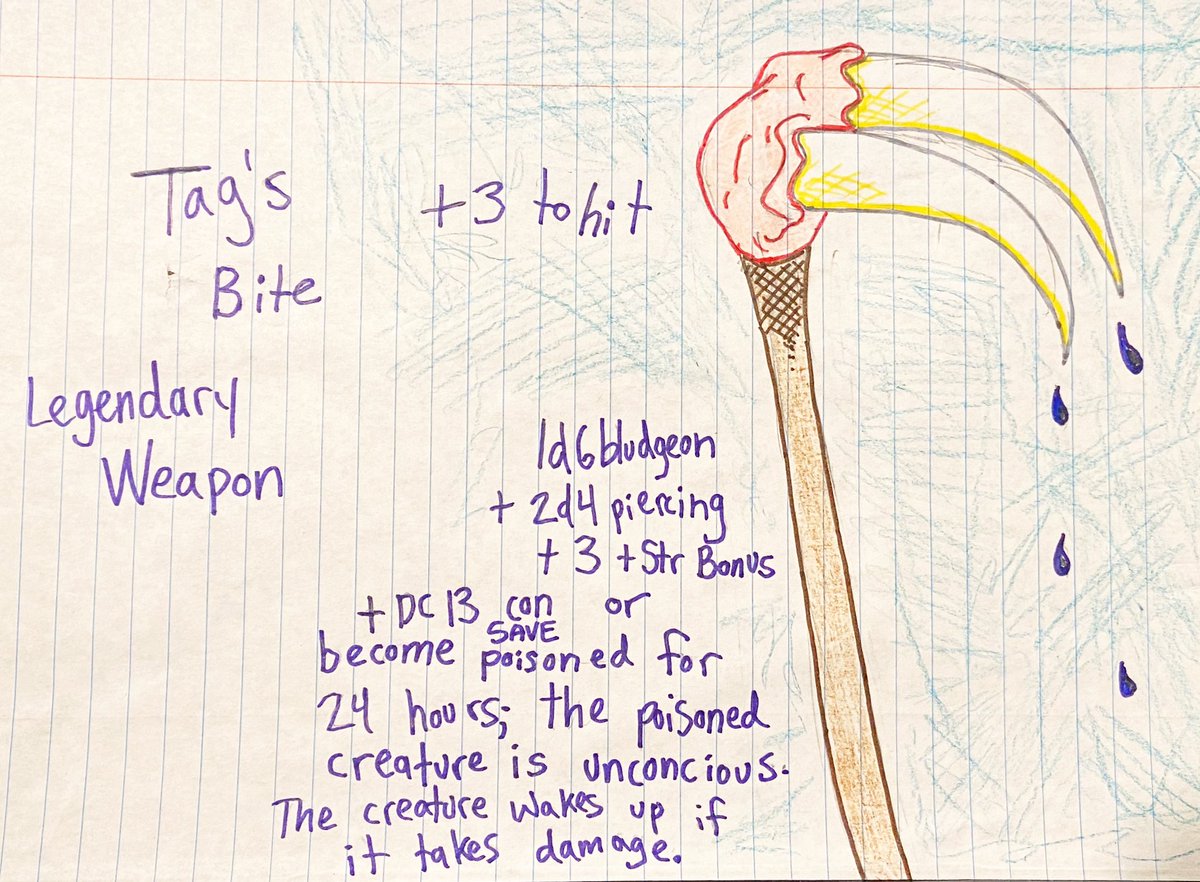 Tag's
Bite
+3 to hit
Legendary
Weapon
1d6 bludgeon
+ 2d4 piercing
+ 3 + Str Bonus
+ DC 13 con SAVE or
become poisoned for
24 hours; the poisoned
creature is unconcious.
The creature wakes up if
it takes damage.